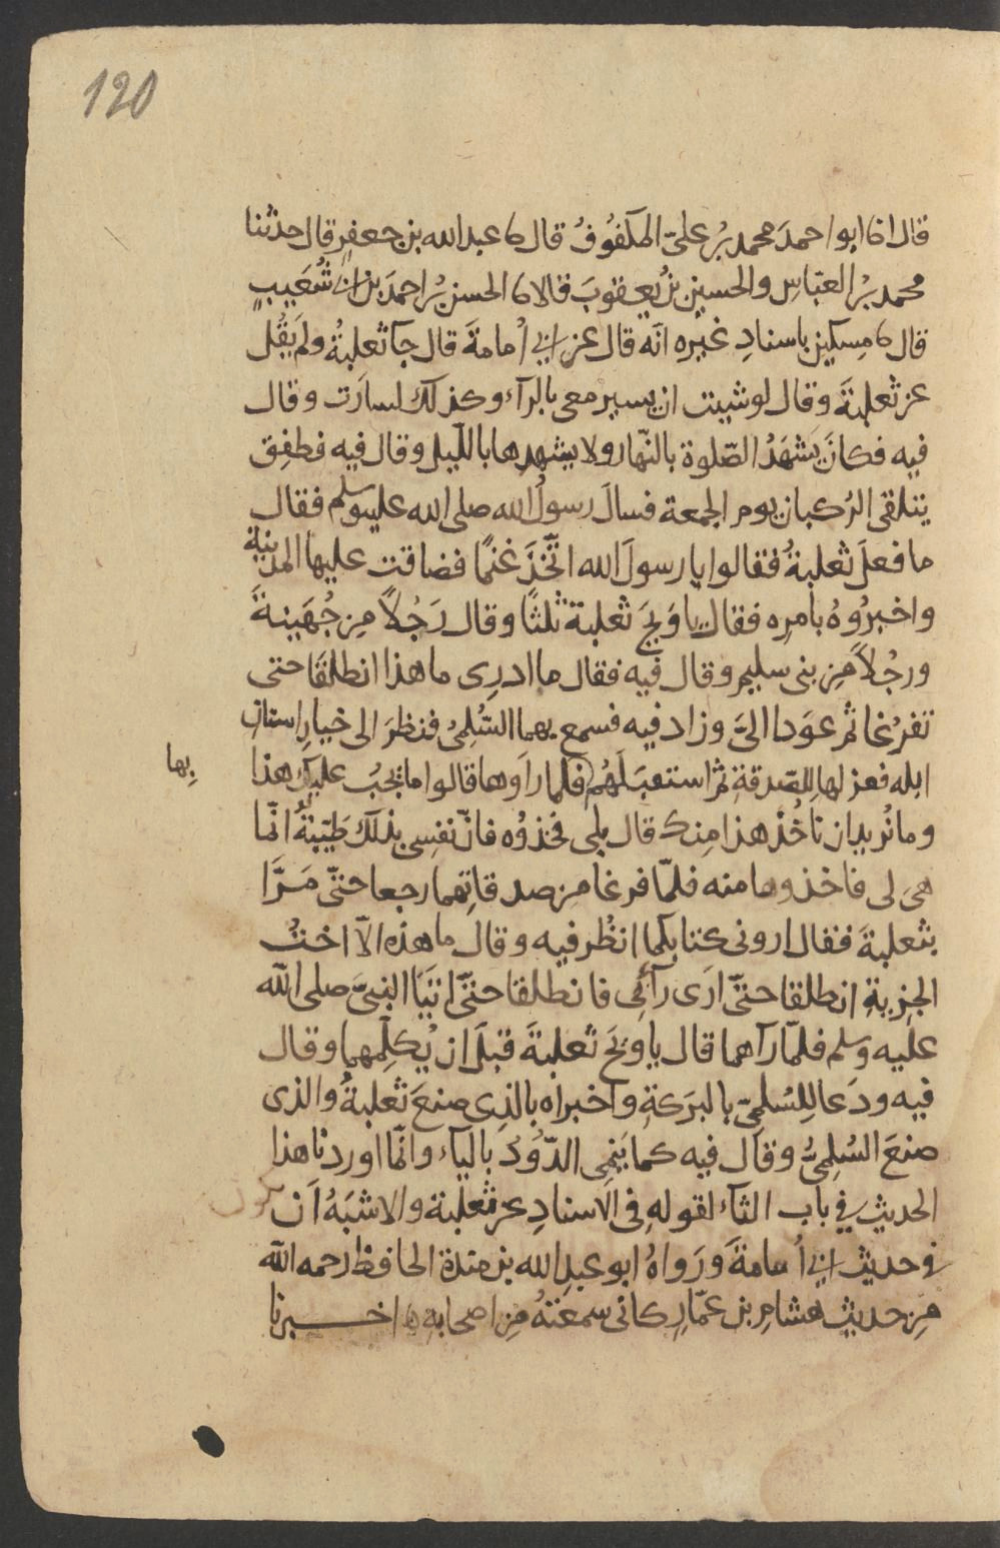 120
قال انا ابو احمدَ محمد بنُ علىّ المكفُوفُ قال نا عبد الله بن جعفرٍ قال حدثنا
محمد بنُ العبّاس والحسين بنُ يعقوبَ قالا نا الحسن بنُ احمدَ بن ابى شُعَيبٍ
قال نا مِسكين باسنادِ غيره انّه قال عن ابى اُمامةَ قال جآ ثعلبةُ ولم يَقُل
عن ثعلبةَ وقال لو شيت ان يسير معى بالرآء وكذلك لسارَت وقال
فيه فكانَ يَشهَدُ الصّلوة بالنّهار ولا يشهدها بالليل وقال فيه فطفِق
يتلقى الرُكبان يوم الجمعة فسالَ رسولُ الله صلى الله عليه وسلم فقال
ما فعلَ ثعلبةُ فقالوا يا رسولَ الله اتّخذَ غنمًا فضاقت عليها المدينة
واخبرُوهُ بامرِه فقال يا وَيحَ ثعلبة ثلثًا وقال رَجُلاً مِن جُهَينةَ
ورجُلاً مِن بنى سليم وقال فيه فقال ما ادرِى ما هذا انطلقَا حتى
تفرُغا ثم عوَدا الىَّ وزاد فيه فسمع بهما السُّلمِىُّ فنظرَ الى خيارِ اسنان
ابله فعزلها للصّدقةِ ثم استقبَلَهُم فلما راَوها قالوا ما يَجبُ عليك هذا
بِها
وما نُريد ان ناخُذ هذا مِنك قال بلى فخذوُه فانّ نفسِى بذلك طَيّبَةٌ انّما
هىَ لى فاخذوها منه فلمّا فرغا من صدقاتِهما رجعا حتّى مَرَّا
بثعلبةَ فقال ارونى كتابكما انظُر فيه وقال ما هذه الاّ اختُ
الجِزيةِ انطلقا حتّى ارَى رآئِى فانطلقا حتّى اتيَا النبىَّ صلى الله
عليه وسلم فلمّا رآهما قال يا ويَحَ ثعلبةَ قبلَ ان يُكلّمهما وقال
فيه ودَعا للِسُلمِىّ بالبرَكةِ واخبراه بالذِى صنعَ ثعلبةُ والذى
صنعَ السُلمِىُّ وقال فيه كما يَنمِى الدّوُدُ بالياء وانّما اوردنا هذا
الحديث فى باب الثآء لقولهِ فِى الاسنادِ عن ثعلبة والاشبَهُ اَن
يكون
فى حديث ابى اُمامةَ ورَواهُ ابو عبدِ الله بن مندة الحافظ رحمه الله
مِن حديث هشامِ بن عمّارٍ كانى سمعتهُ مِن اصحابهِ اخبرنا